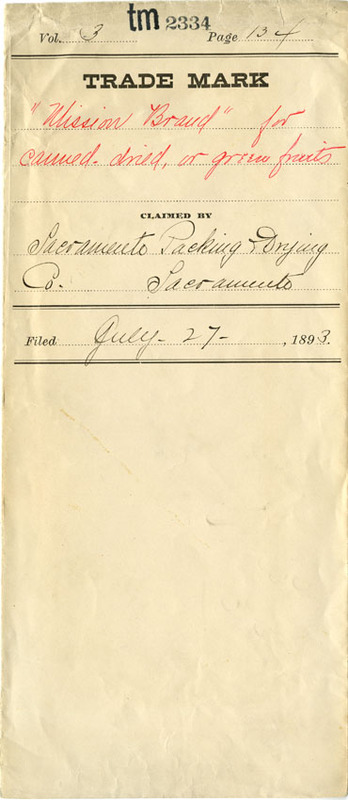 tm 2334
Vol. 3 Page 134
TRADE MARK
"Mission Brand" for
canned, dried, or green fruits
CLAIMED BY
Sacramento Packing & Drying
Co. Sacramento
Filed July - 27 - , 1893.